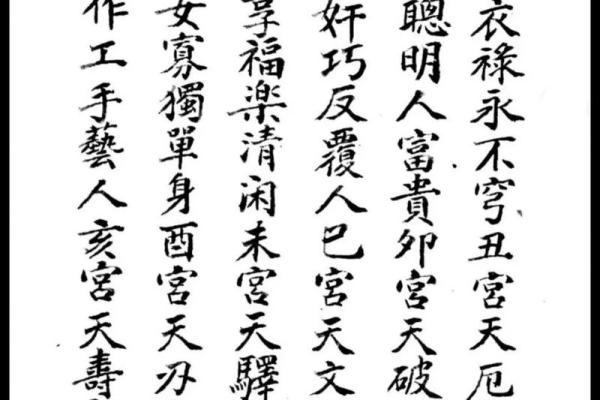 衣祿永不穹丑宮天厄
聰明人富貴卯宮天破
奸巧反覆人巳宮天文
享福楽清闲未宮天驛
女寡獨單身酉宮天刃
作工手藝人亥宮天壽